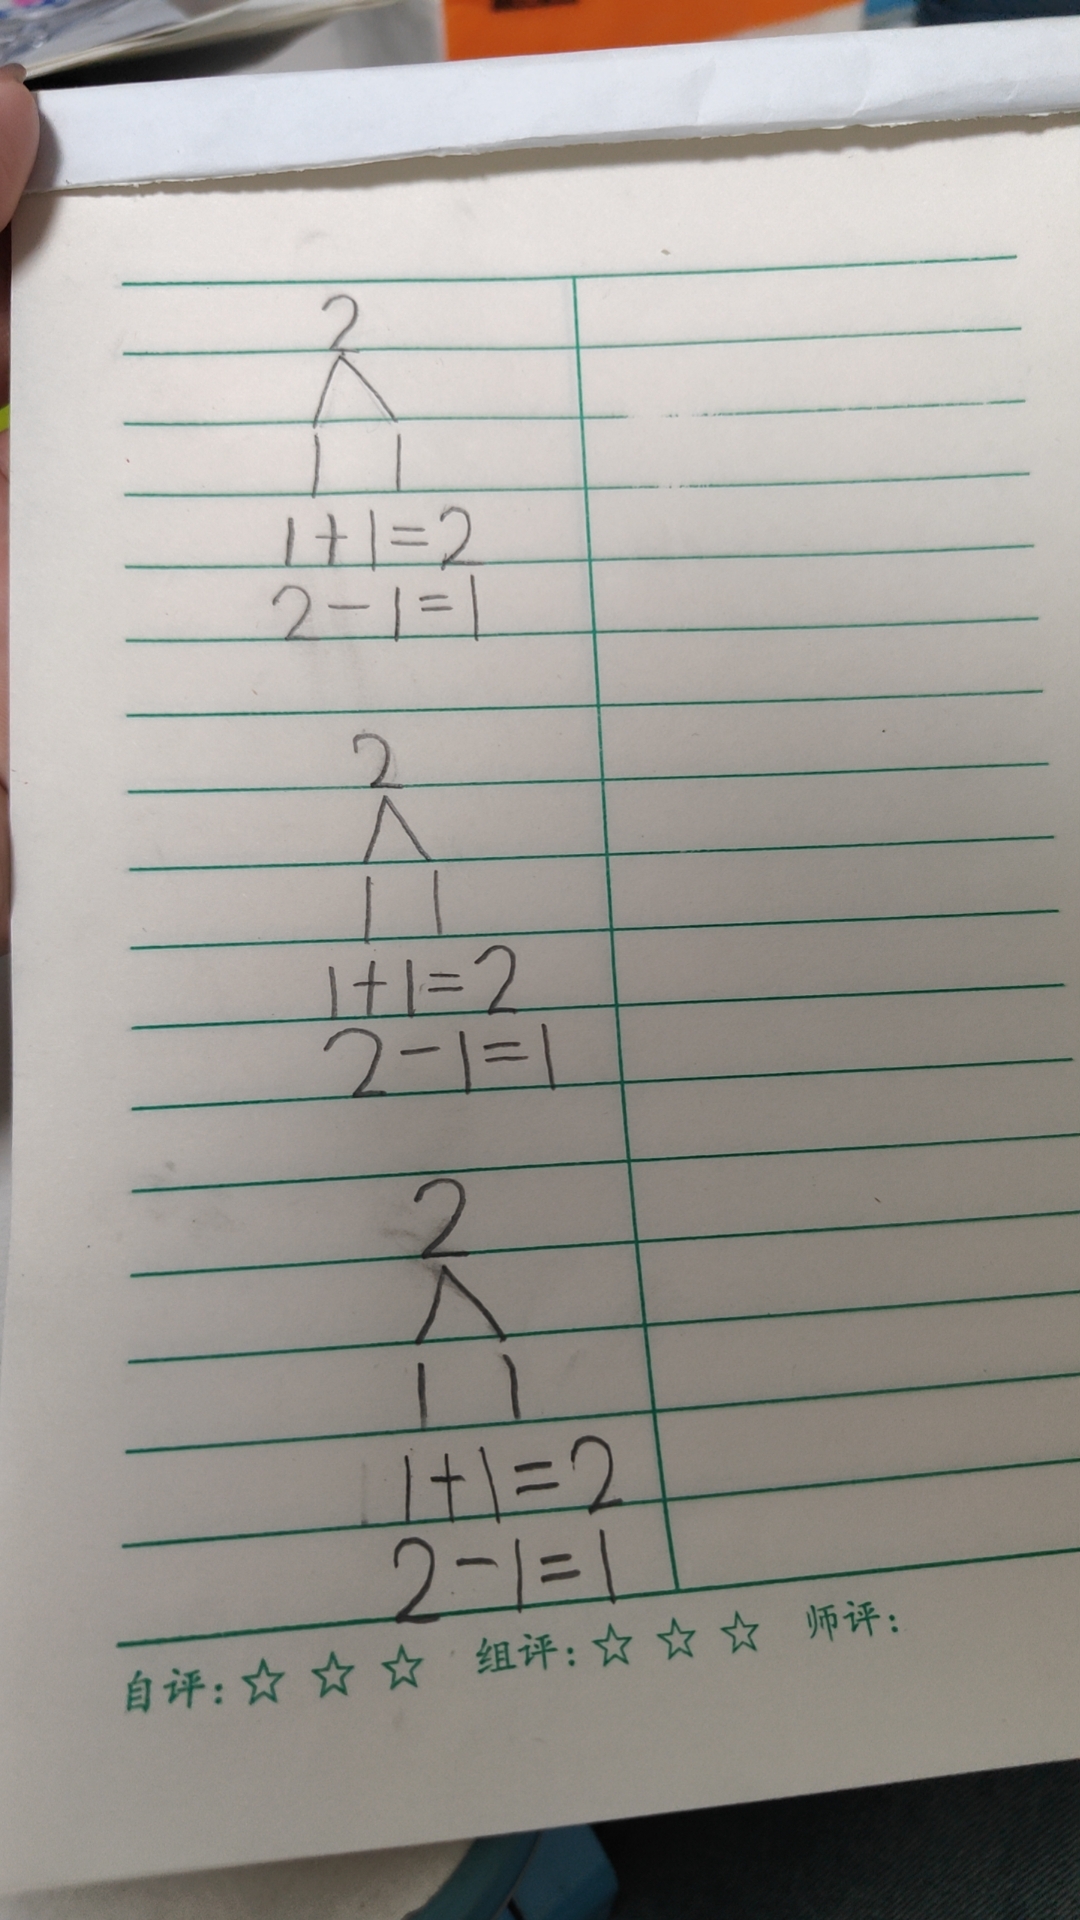 2
1 1
1+1=2
2-1=1
2
1 1
1+1=2
2-1=1
2
1 1
1+1=2
2-1=1
自评:☆ ☆ ☆ 组评:☆ ☆ ☆ 师评: